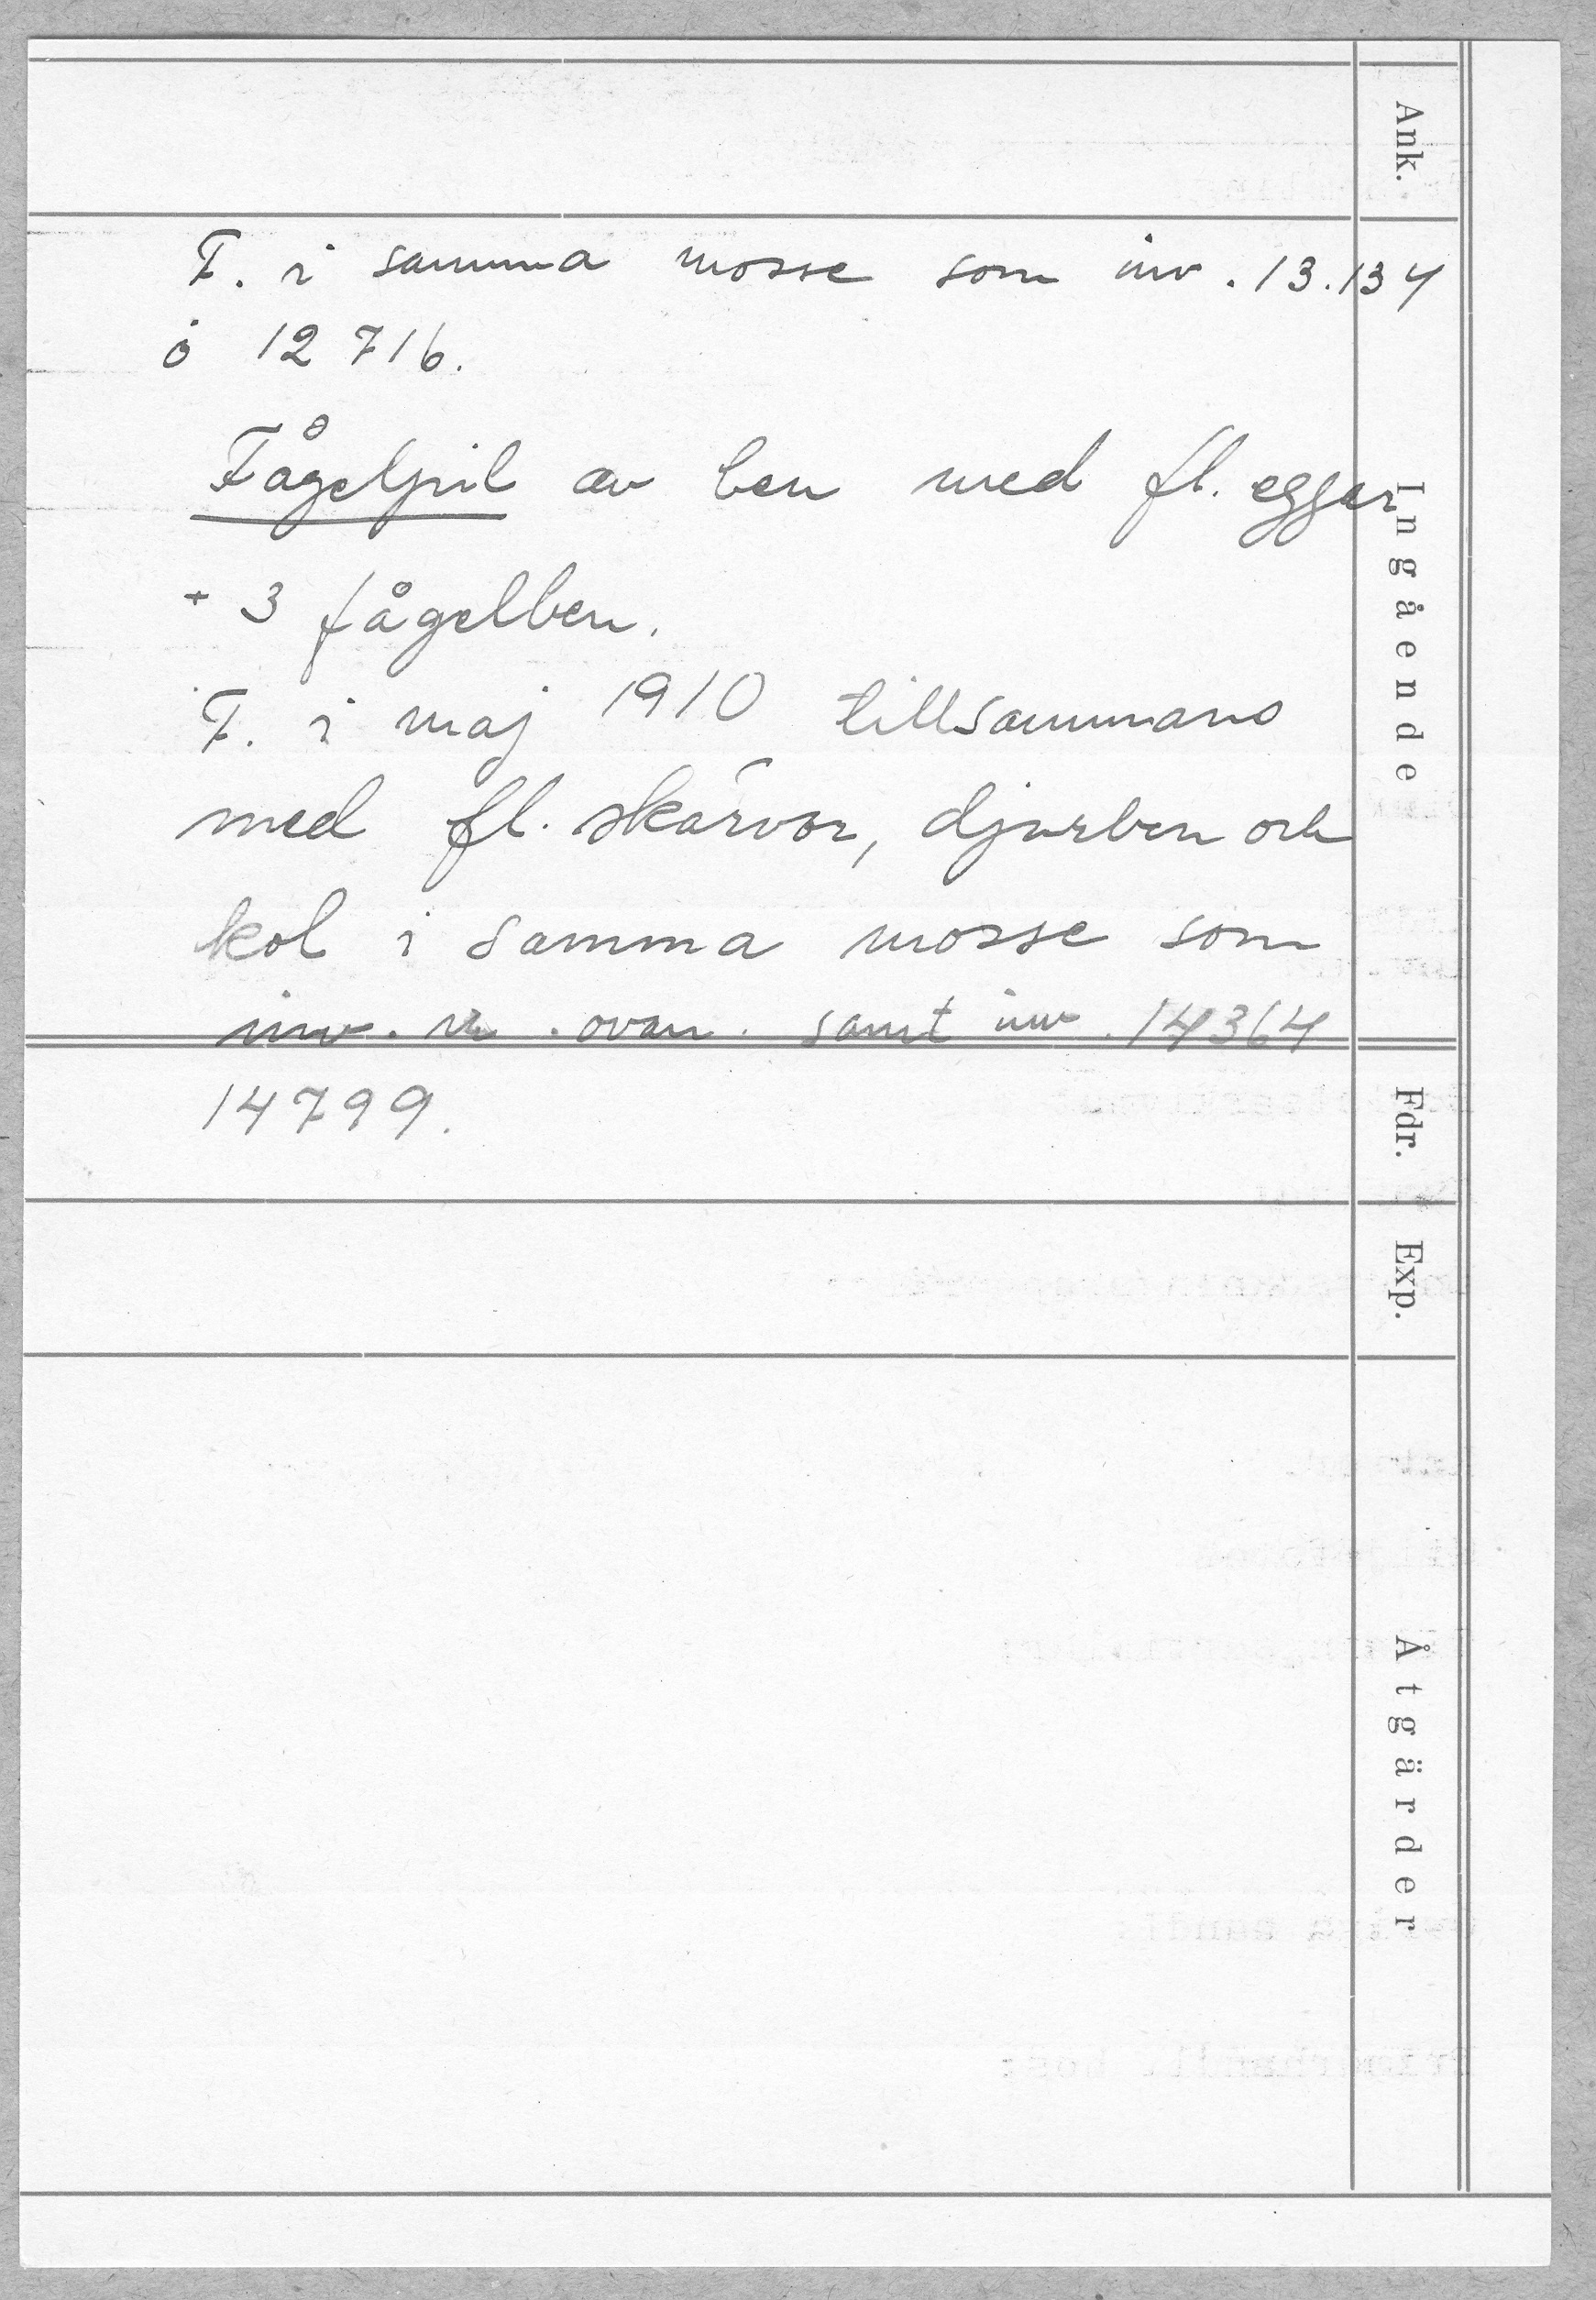 Ank.
F. i samma mosse som inv. 13.134
o 12716.
Fågelpil av ben med fl. eggar
+ 3 fågelben.
F. i maj 1910 tillsammans
med fl. skärvor, djurben och
kol i samma mosse som
inv. nr. ovan. samt inv. 14364
14799.
Ingående
Fdr.
Exp.
Åtgärder